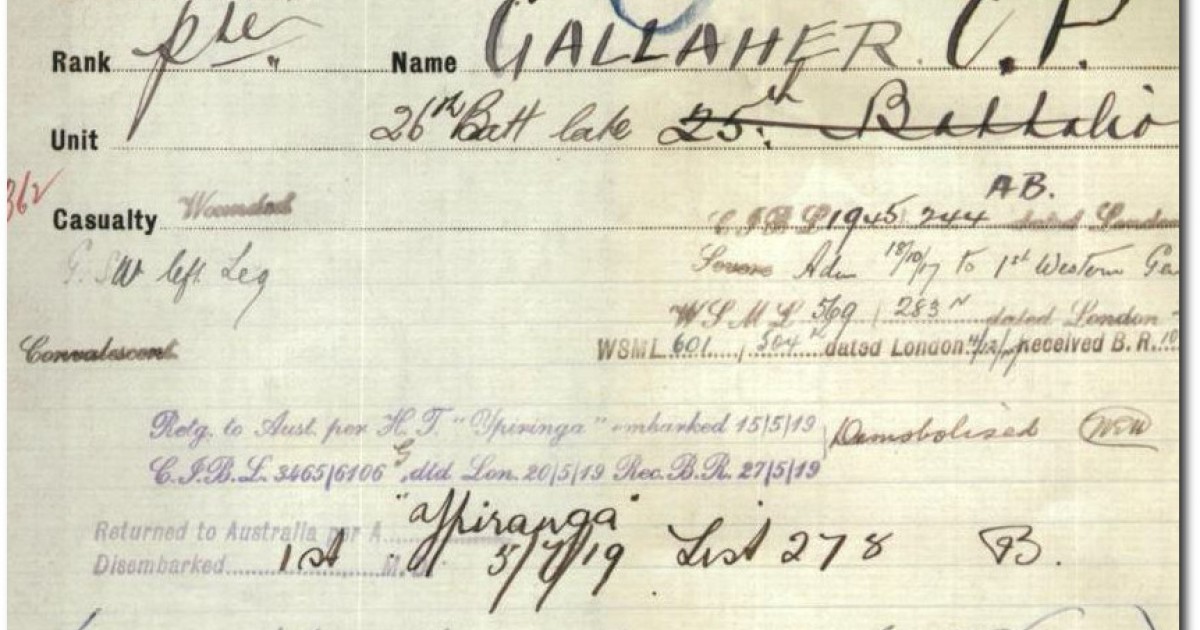 Rank Pte Name GALLAHER. C. P.
Unit 26th Batt late 25th Battalio
362
Casualty Wounded AB.
C I B L 1945 244 dated London
G. SW left Leg Severe Adm 18/10/17 to 1st Western Ge
W S M L 569 283 N dated London
Convalescent WSML 601 304 dated London Received B. R.
Retg. to Aust. per H. T. "Ypiringa" embarked 15/5/19 Demobolised NSW
C.I.B.L. 3465/6106 G dtd Lon. 20/5/19 Rec. B.R. 27/5/19
Returned to Australia per A "Ypiranga"
Disembarked 1st M.D. 5/7/19 List 278 B.